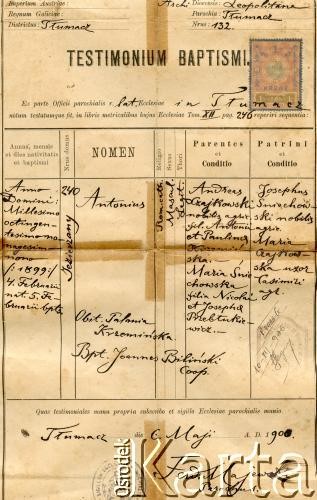 Imperium Austriae:
Regnum Galiciae:
Districtus: Tłumacz
Aschi Diocesis: Leopolitana
Parochia: Tłumacz
Nrus: 132.
TESTIMONIUM BAPTISMI.
Ex parte Officii parochialis r. lat. Ecclesiae in Tłumacz
notum testatumque fit, in libris metricalibus hujus Ecclesiae Tom. XII pag. 246 reperiri sequentia:
Annus, mensis et dies nativitatis et baptismi
Nrus domus
NOMEN
Religio
Sexus
Thori
Parentes et Conditio
Patrini et Conditio
Anno
Domini:
Millesimo
octingen-
tesimo no-
nagesimo
nono
/: 1899 :/
4. Februarii
nat. 5. Fe-
bruarii bpts.
240
Antonius
Obst. Tatania
Krzemińska.
Bpt. Joannes Biliński
Coop.
Rom. cath.
Mascul.
Andreas
Czajkowski
nobilis agric.
fil. Antonii
et Paulinae
Maria Śnie-
chowska
filia Nicolai
et Josephae
Josephus
Śniechow-
ski nobilis
agr.
Maria
Czajkow-
ska uxor
Casimiri
agr.
Quas testimoniales manu propria subscribo et sigillo Ecclesiae parochialis munio.
Tłumacz die 6 Maji A. D. 1900.
Ośrodek
Karta